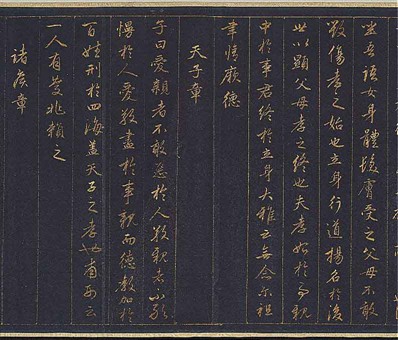 坐吾語女身體髮膚受之父母不敢
毀傷孝之始也立身行道揚名於後
世以顯父母孝之終也夫孝始於事親
中於事君終於立身大雅云無念爾祖
聿脩厥德
天子章
子曰愛親者不敢惡於人敬親者不敢
慢於人愛敬盡於事親而德教加於
百姓刑於四海蓋天子之孝也甫刑云
一人有慶兆賴之
諸侯章